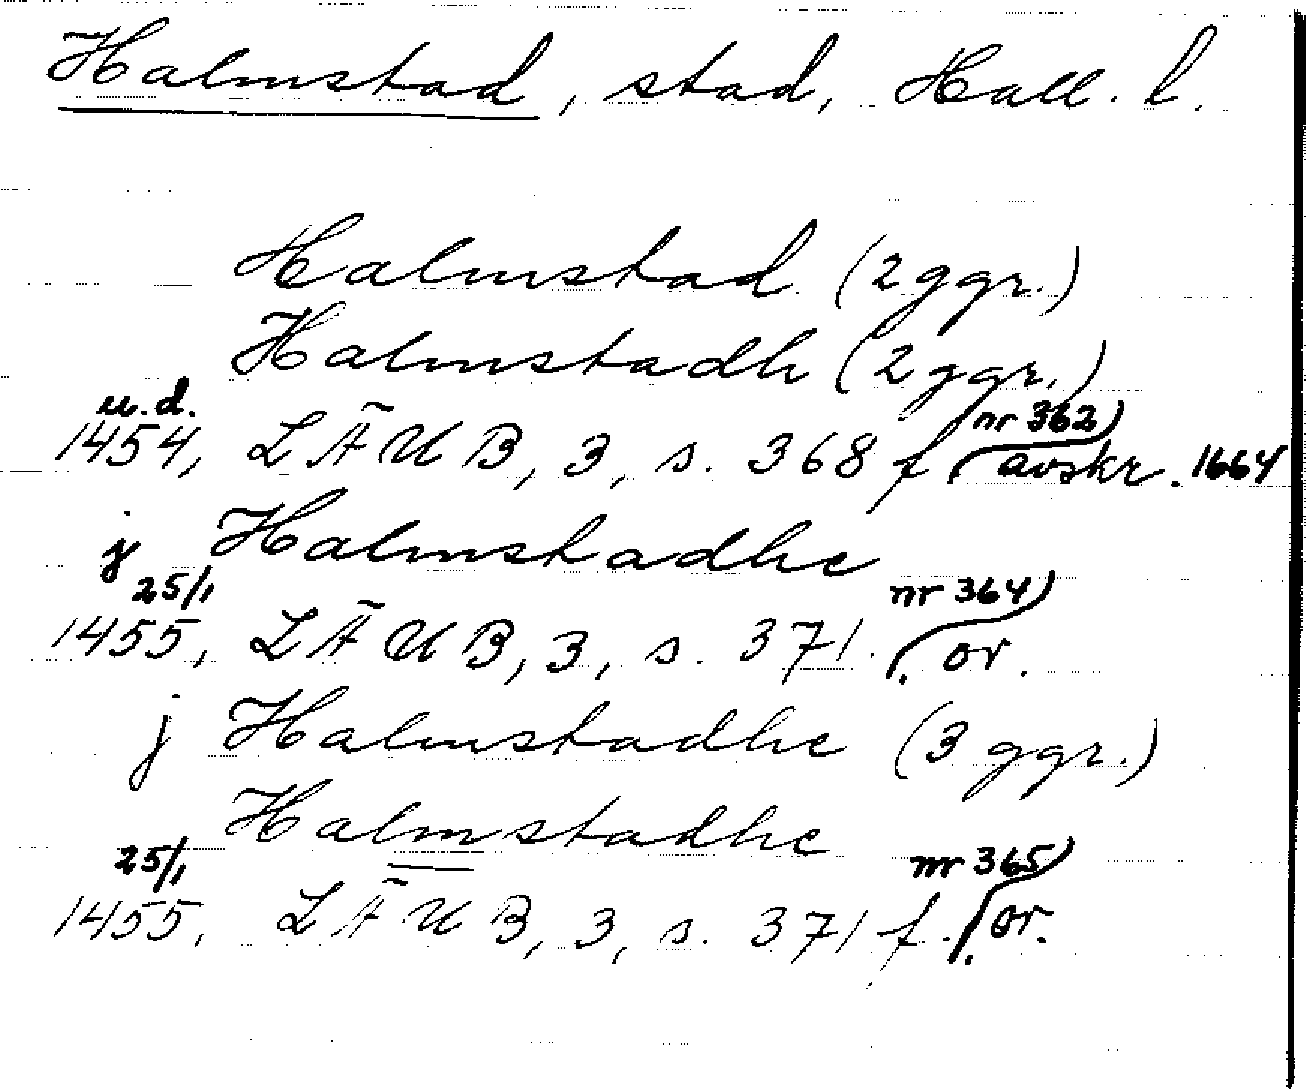 Halmstad, stad, Hall. l.
Halmstad (2 ggr.)
Halmstadh (2 ggr.)
u.d.
1454, LÄUB, 3, s. 368 f (nr 362) avskr. 1664
j Halmstadhe
25/1
1455, LÄUB, 3, s. 371. (nr 364) or.
j Halmstadhe (3 ggr.)
Halmstadhe
25/1
1455, LÄUB, 3, s. 371 f. (nr 365) or.